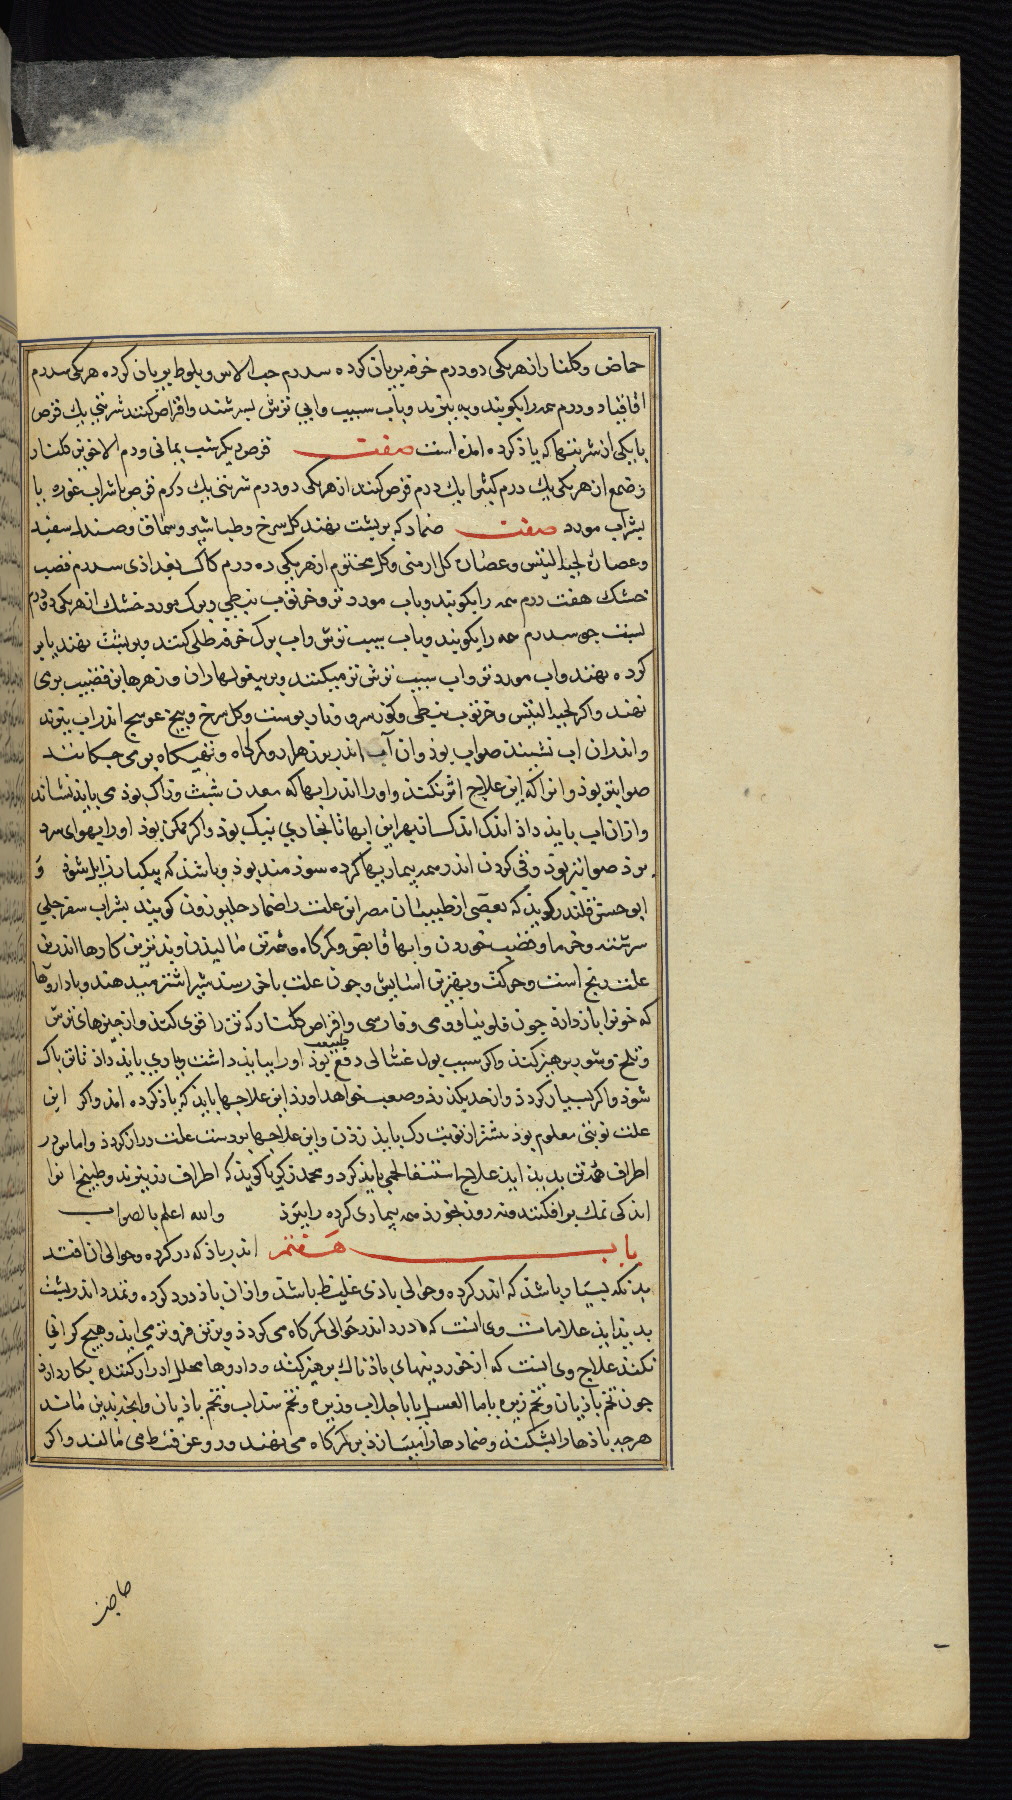 حماض و کلنار از هر یکی دو درم خرفه بریان کرده سدرم حب الاس و بلوط بریان کرده هر یکی سدرم
اقاقیا دو درم همه را بکوبند و به بیزند و باب سیب و ابی ترش بسرشند و اقراص کنند شربتی یک قرص
با یکی از شربتها که یاذ کرده امذه است صفت قرص دیکر شب یمانی ودم الاخوین کلنار
و صمغ از هر یکی یک درم کثیرا یک درم قرص کنند از هر یکی دو درم شربتی یک درم قرص با شراب غوره یا
بشراب مورد صفت ضماد که بر پشت نهند کل سرخ و طباشیر و سماق و صندل سفید
و عصاره لحیة التیس و عصاره کل ارمنی و کل مختوم از هر یکی ده درم کاک بغداذی سدرم قصب
خشک هفت درم همه را بکوبند و باب مورد تر و خرنوب نبطی و برک مورد خشک از هر یکی دو درم
بست جو سدرم همه را بکوبند و باب سیب ترش و اب برک خرفه طلی کنند و بر پشت نهند یا بر
کرده نهند و اب مورد تر و اب سیب ترش تر میکنند و بر بیغولهاء ران و زهرها بن قضیب برمی
نهند و اکر لحیة التیس و خرنوب نبطی و کوز سرو و نار پوست و کل سرخ و بیخ عوسج اندر اب بپزند
و اندران اب نشیند صواب بوذ و ان آب اندر بوزهار و کرکاه و تهیکاه برمی جکانند
صوابتر بوذ و انرا که این علاج اثر نکند و او را اندر ابها که معدن شب و زاک بوذ می بایذ نشاند
و ازان اب بایذ داذ اندک اندک تا بهر این ابها تا بخاری نیک بوذ و اکر ممکن بوذ او را بهوای سرد
برذ صوابتر بوذ وقی کردن اندر همه بیماریها کرده سوذمند بوذ و باشذ که بیکبار زایل شوذ و
ابو حسن قلندر کویذ که بعضی از طبیبان مصر این علت را ضماد حلبوزون کوبیند بشراب سفرجلی
سرشته و خرما و قضیب خوردن و ابها قابض و کرکاه و همه تن مالیذن و بذترین کارها اندرین
علت رنج است و حرکت و بهترین اسایش و جون علت باخر رسذ شیر اشتر میدهند و با داروها
که خونرا باز دارذ جون فلونیا و رومی و فارسی و اقراص کلنار که تن را قوی کند و از جیزهای ترش
و تلخ و شور برهیز کند و اکر سبب بول غسالی دفع طبیعت بوذ او را ببایذ داشت و یاری بایذ داذ تا تن پاک
شوذ و اکر بسیار کردذ و از حد بکذرذ و صعب خواهد اورذ این علاجها بایذ که یاذ کرده امذ و اکر این
علت نوبتی معلوم بوذ بیشتر از نوبت رک بایذ زذن و این علاجها بر دست علت دراز کردذ و اماس در
اطراف همه تن بدیذ ایذ علاج استسقا لحمی بایذ کرد و محمد زکریا کویذ که اطراف رز بپزند و طبیخ انرا
اندکی نمک برافکنند و نه روز بخورذ همه بیماری کرده را ببرذ والله اعلم بالصواب
باب هفتم اندر باذ که در کرده و حوالی ان افتد
بدنکه بسیار باشذ که اندر کرده و حوالی باذی غلیظ باشذ و ازان باذ درد کرده و تمدد اندر پشت
بدیذ ایذ علامات وی انست که درد اندر حوالی کرکاه می کردذ و برتن فرو تر می ایذ و هیچ کرانی
نکند علاج وی انست که از خوردنیهای باذناک برهیز کند و داروها محلل ادرار کننده بکار دارذ
جون تخم باذیان و تخم زیره با ما العسل یا با جلاب و زیره و تخم سداب و تخم باذیان و انجذ بدین ماند
هر جه باذها را بشکند و ضمادها را میسازذ بر کرکاه می نهند و روغن قسط می مالند و اکر
صاحب